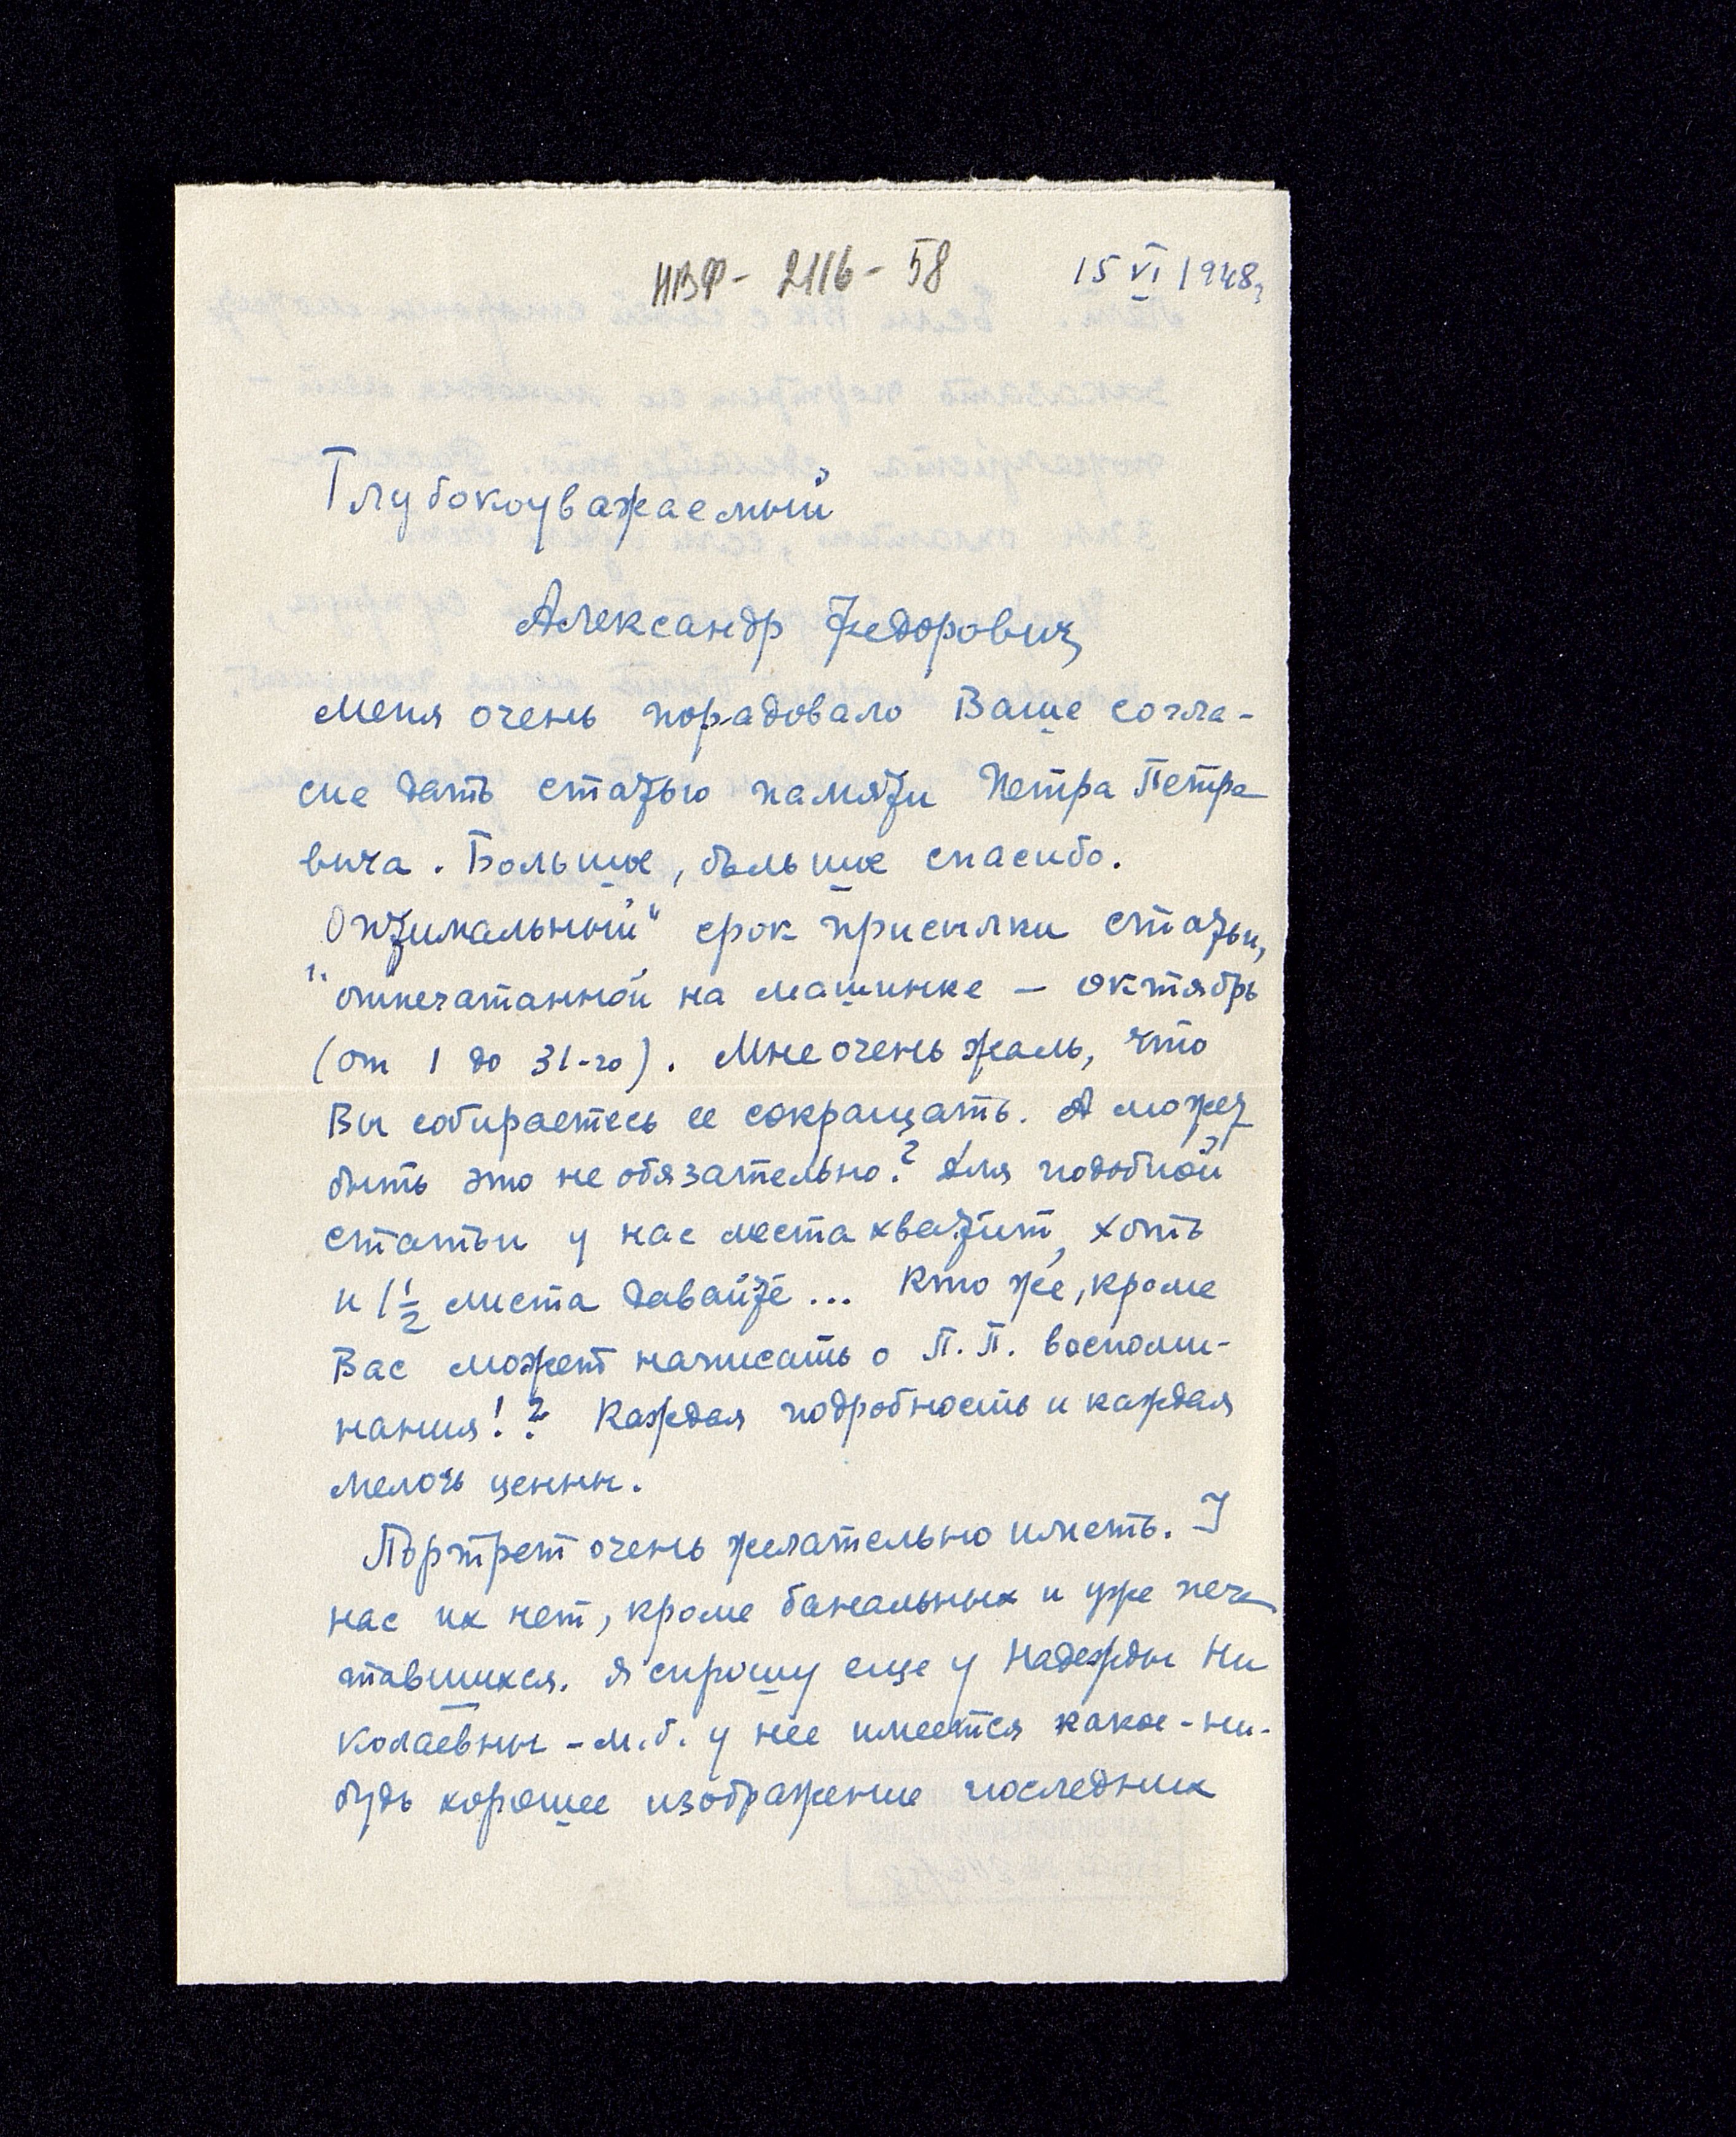 НВФ - 2116 - 58
15 VI 1948г
Глубокоуважаемый
Александр Федорович
Меня очень порадовало Ваше согла-
сие дать статью памяти Петра Петро
вича. Больше, больше спасибо.
Оптимальный" срок присылки статьи,
"отпечатанной на машинке — октябрь
(от 1 до 31-го). Мне очень жаль, что
Вы собираетесь ее сокращать. А может
быть это не обязательно? Для подобной
статьи у нас места хватит, хоть
и 1 1/2 листа давайте... Кто же, кроме
Вас может написать о П.П. воспоми-
нания!? Каждая подробность и каждая
мелочь ценны.
Портрет очень желательно иметь. У
нас их нет, кроме банальных и уже печа
тавшихся. Я спрошу еще у Надежды Ни
колаевны - м.б. у нее имеется какое-ни-
будь хорошее изображение последних